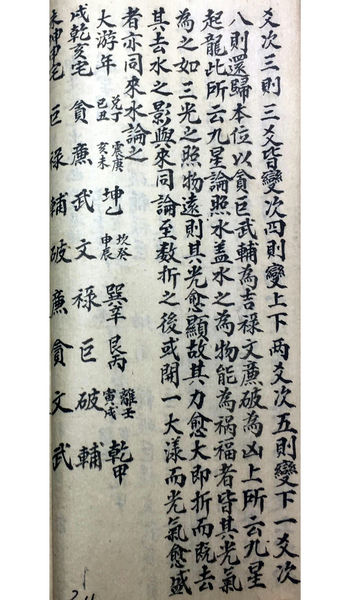 爻次三則三爻皆變次四則變上下两爻次五則變下一爻次
八則還歸本位以貪巨武輔為吉祿文廉破為凶上所云九星
起龍此所云九星論照水盖水之為物能為禍福者皆其光氣
為之如三光之照物遠則其光愈顯故其力愈大即折而既去
其去水之影與來同論至數折之後或開一大漾而光氣愈盛
者亦同來水論之
大游年 兌丁巳丑 震庚亥未 坤乙 坎癸申辰 巽辛 艮丙 離壬寅戌 乾甲
戌乾亥宅 貪 廉 武 文 祿 巨 破 輔
坤申宅 巨 祿 輔 破 廉 貪 文 武